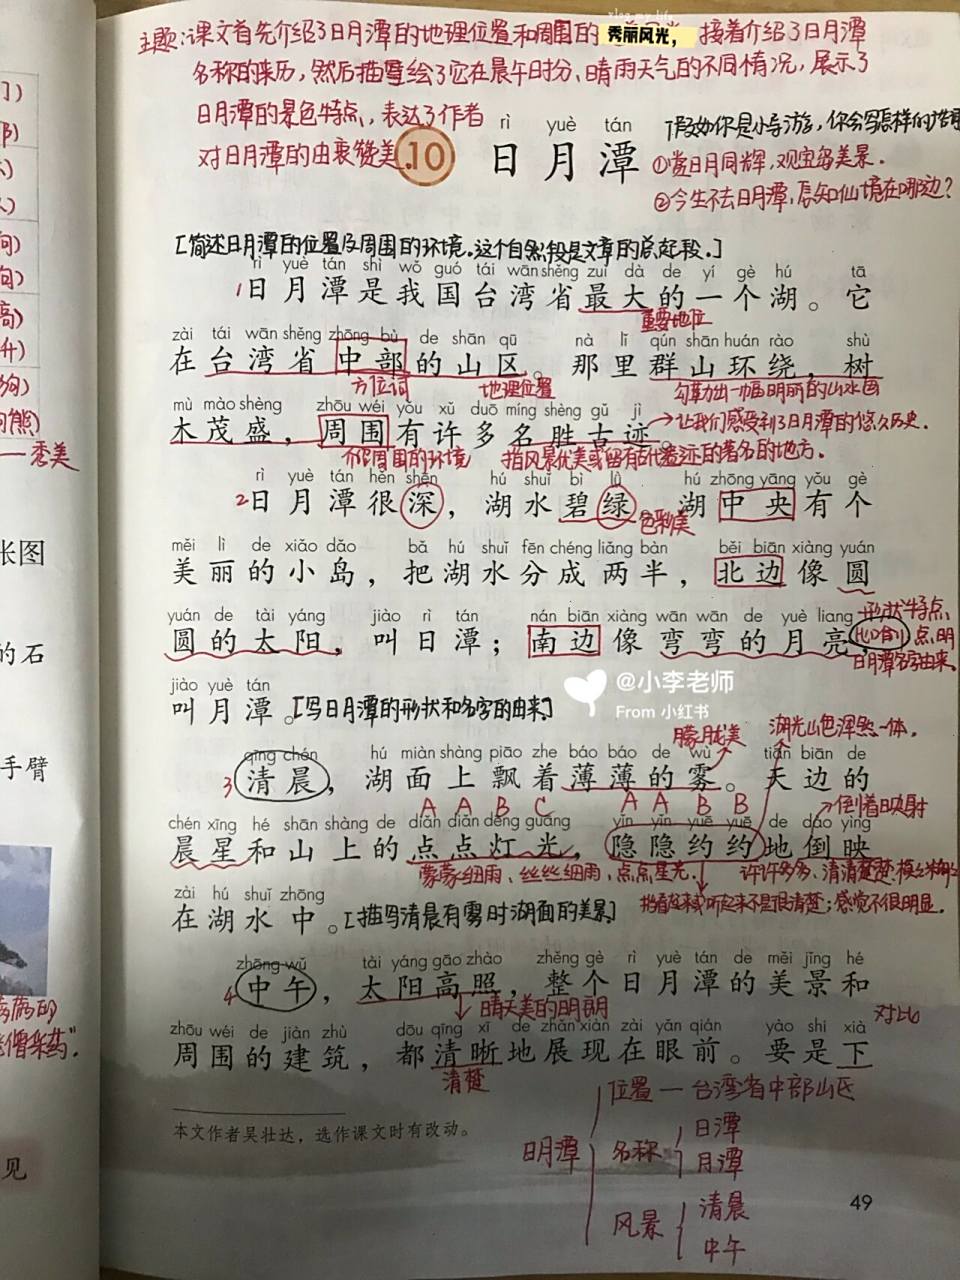 主题:课文首先介绍了日月潭的地理位置和周围的秀丽风光，接着介绍了日月潭
名称的来历，然后描绘了它在晨午时分、晴雨天气的不同情况，展示了
日月潭的景色特点，表达了作者
对日月潭的由衷赞美。
10
rì yuè tán
日月潭
假如你是小导游，你会写怎样的
①赏日月同辉，观宝岛美景.
②今生不去日月潭，怎知仙境在哪边？
[简述日月潭的位置及周围的环境.这个自然段是文章的总起段.]
rì yuè tán shì wǒ guó tái wān shěng zuì dà de yí gè hú tā
1日月潭是我国台湾省最大的一个湖。它
重要地位
zài tái wān shěng zhōng bù de shān qū nà lǐ qún shān huán rào shù
在台湾省中部的山区。那里群山环绕，树
方位词 地理位置 勾勒出一幅明丽的山水画
mù mào shèng zhōu wéi yǒu xǔ duō míng shèng gǔ jì
木茂盛，周围有许多名胜古迹。
→让我们感受到了日月潭的悠久历史.
介绍周围的环境 指风景优美或留有古代遗迹的著名的地方.
rì yuè tán hěn shēn hú shuǐ bì lǜ hú zhōng yāng yǒu gè
2日月潭很深，湖水碧绿。湖中央有个
色彩美
měi lì de xiǎo dǎo bǎ hú shuǐ fēn chéng liǎng bàn běi biān xiàng yuán
美丽的小岛，把湖水分成两半，北边像圆
yuán de tài yáng jiào rì tán nán biān xiàng wān wān de yuè liang
圆的太阳，叫日潭；南边像弯弯的月亮，
形状特点
点明
日月潭名字由来.
jiào yuè tán
叫月潭。[写日月潭的形状和名字的由来]
@小李老师
From 小红书
朦胧美
湖光山色浑然一体.
qīng chén hú miàn shàng piāo zhe báo báo de wù tiān biān de
3清晨，湖面上飘着薄薄的雾。天边的
AABC AABB
→倒着映射
chén xīng hé shān shàng de diǎn diǎn dēng guāng yǐn yǐn yuē yuē de dào yìng
晨星和山上的点点灯光，隐隐约约地倒映
蒙蒙细雨、丝丝细雨、点点星光. 许许多多、清清楚楚
指看起来或听起来不是很清楚；感觉不很明显.
zài hú shuǐ zhōng
在湖水中。[描写清晨有雾时湖面的美景]
zhōng wǔ tài yáng gāo zhào zhěng gè rì yuè tán de měi jǐng hé
4中午，太阳高照，整个日月潭的美景和
晴天美的明朗
对比
zhōu wéi de jiàn zhù dōu qīng xī de zhǎn xiàn zài yǎn qián yào shi xià
周围的建筑，都清晰地展现在眼前。要是下
清楚
位置—台湾省中部山区
日潭
日月潭 名称
月潭
清晨
风景
中午
本文作者吴壮达，选作课文时有改动。
49
秀美
张图
的石
手臂
见